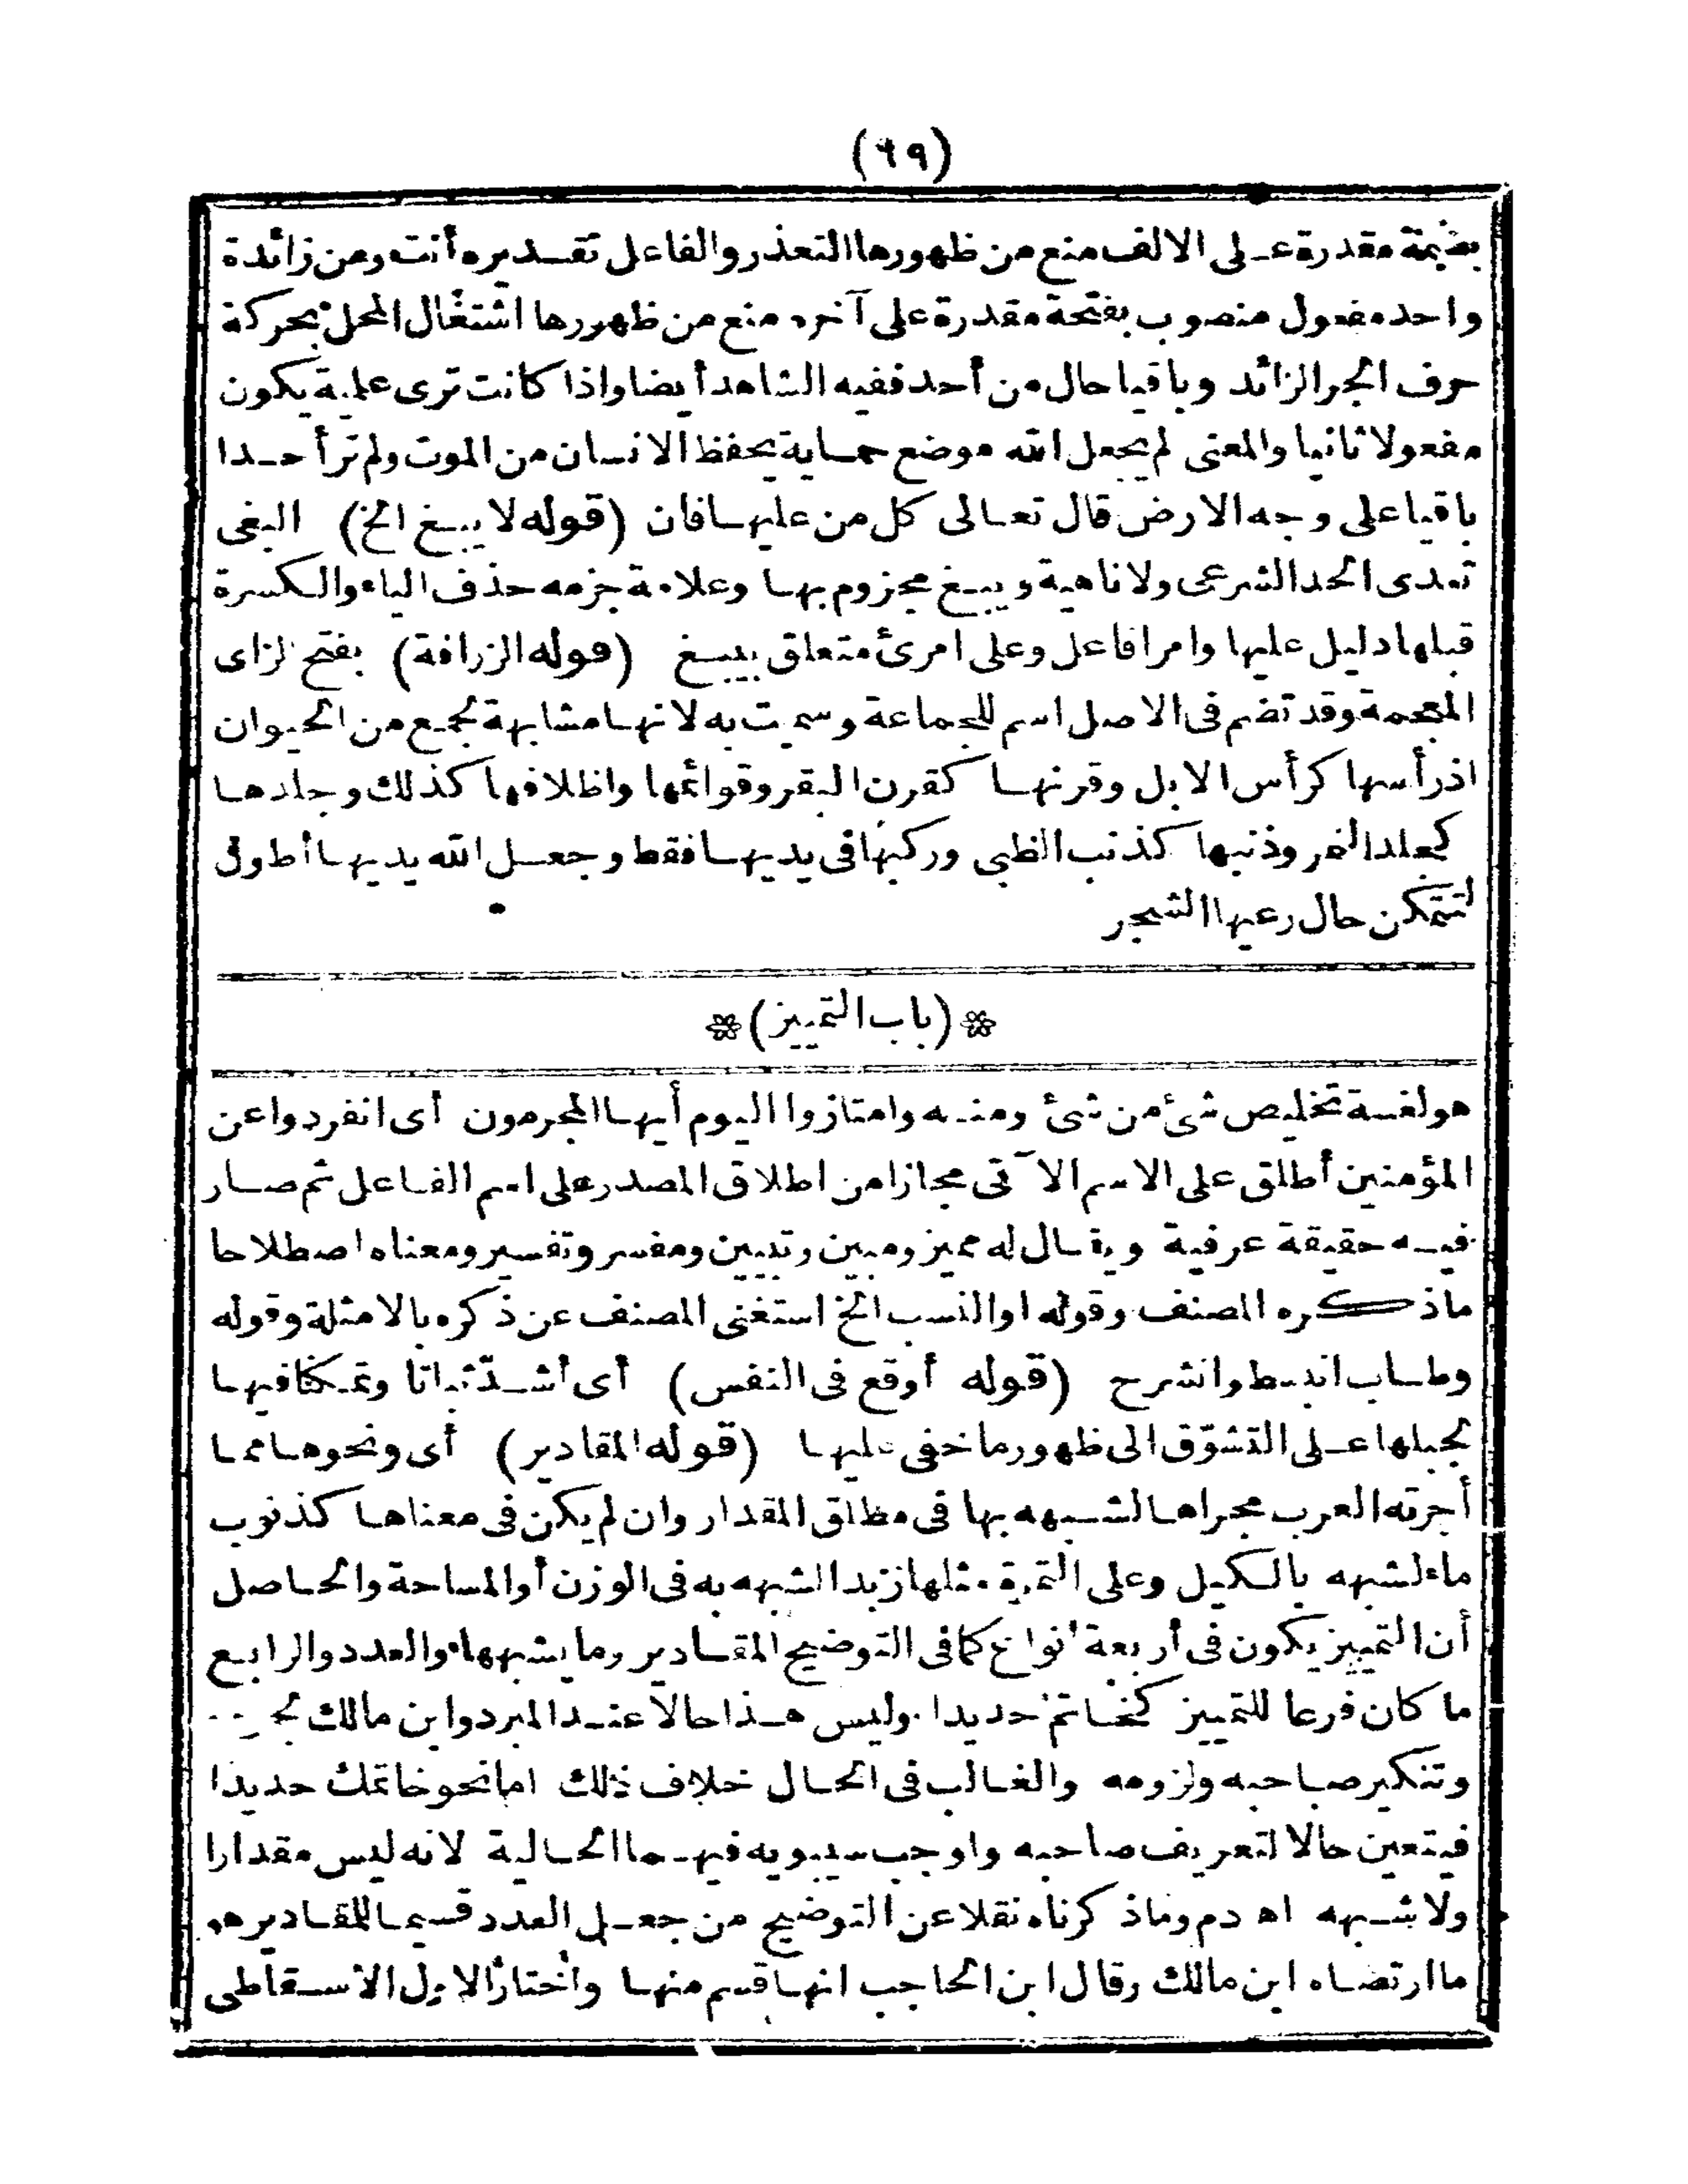 (٦٩)
بضمة مقدرة على الالف منع من ظهورها التعذر والفاعل تقديره أنت ومن زائدة
واحد مفعول منصوب بفتحة مقدرة على آخره منع من ظهورها اشتغال المحل بحركة
حرف الجر الزائد وباقيا حال من أحد ففيه الشاهد أيضا واذا كانت ترى علمية يكون
مفعولا ثانيا والمعنى لم يجعل الله موضع حماية يحفظ الانسان من الموت ولم تر أحدا
باقيا على وجه الارض قال تعالى كل من عليها فان (قوله لا يبغ الخ) البغى
تعدى الحد الشرعى ولا ناهية ويبغ مجزوم بها وعلامة جزمه حذف الياء والكسرة
قبلها دليل عليها وامرا فاعل وعلى امرئ متعلق بيبغ (قوله الزرافة) بفتح الزاى
المعجمة وقد تضم فى الاصل اسم للجماعة وسميت به لانها مشابهة لجمع من الحيوان
اذ رأسها كرأس الابل وقرنها كقرن البقر وقوائمها واظلافها كذلك وجلدها
كجلد النمر وذنبها كذنب الظبى وركبها فى يديها فقط وجعل الله يديها أطول
لتتمكن حال رعيها الشجر
(باب التمييز)
هو لغسة تخليص شئ من شئ ومنه وامتازوا اليوم أيها المجرمون أى انفردوا عن
المؤمنين أطلق على الاسم الآتى مجازا من اطلاق المصدر على اسم الفاعل ثم صار
فيه حقيقة عرفية ويقال له مميز ومبين وتبيين ومفسر وتفسير ومعناه اصطلاحا
ماذكره المصنف وقوله او النسب الخ استغنى المصنف عن ذكره بالامثلة وقوله
وطاب انبسط وانشرح (قوله أوقع فى النفس) أى أشدّ ثباتا وتمكنا فيها
لجبلها على التشوّق الى ظهور ما خفى عليها (قوله المقادير) أى ونحوها مما
أجرته العرب مجراها لشبهه بها فى مطلق المقدار وان لم يكن فى معناها كذنوب
ماء لشبهه بالكيل وعلى التمرة مثلها زبدا لشبهه به فى الوزن أو المساحة والحاصل
أن التمييز يكون فى أربعة انواع كما فى التوضيح المقادير وما يشبهها والعدد والرابع
ما كان فرعا للتمييز كخاتم حديدا وليس هذا حالا عند المبرد وابن مالك
وتنكير صاحبه ولزومه والغالب فى الحال خلاف ذلك اما نحو خاتمك حديدا
فيتعين حالا لتعريف صاحبه واوجب سيبويه فيهما الحالية لانه ليس مقدارا
ولا شبهه اه دم وماذكرناه نقلا عن التوضيح من جعل العدد قسيما للمقادير هو
ما ارتضاه ابن مالك وقال ابن الحاجب انها قسم منها واختار الاول الاسقاطى